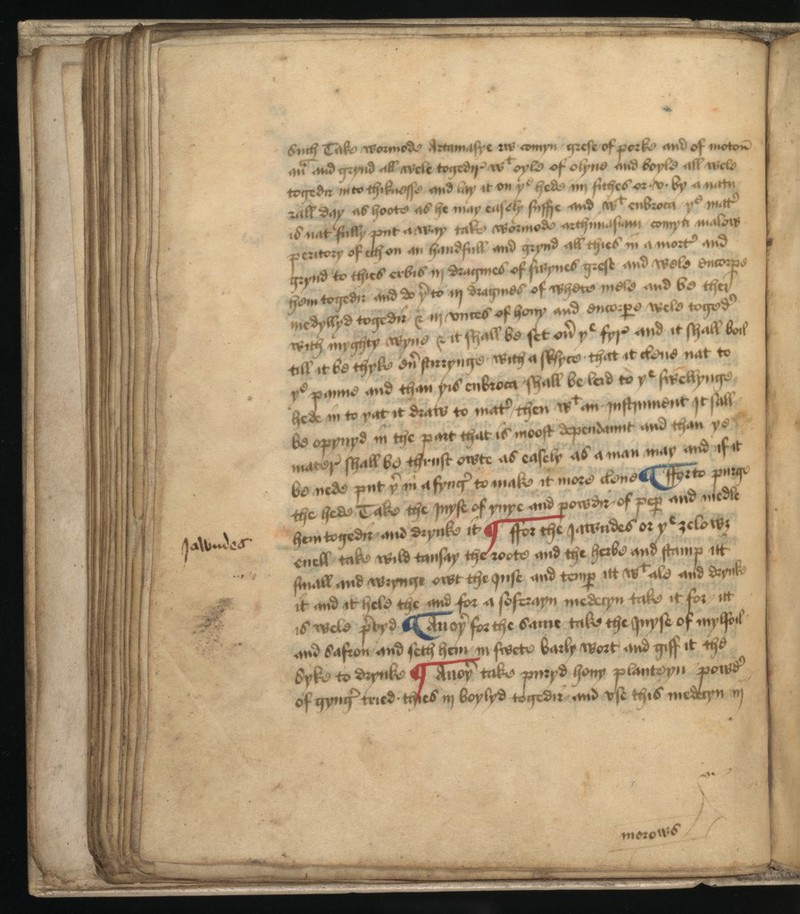 such Take wormode Artamasye rw comyn grese of porke and of moton
an and grynd all wele togedir wt oyle of olyue and boyle all wele
togedir into thiknesse and lay it on ye hede iiij sithes or v by a natu
rall day as hoote as he may easely suffre and wt enbroca ye mater
is nat fully put a way take wormode arthimasiam comyn malow
peritory of ech on an handfull and grynd all thies in a morter and
grynd to thies erbis iij dragmes of swynes grese and wele encorpe
hem togedir and do yer to iij dragmes of whete mele and be thei
medyllyd togedir & iij vnces of hony and encorpe wele togeder
with myghty wyne & it shall be set ouer ye fyre and it shall boil
till it be thyke euer sturrynge with a slyce that it cleue nat to
ye panne and than yis enbroca shall be leid to ye swellynge
hede in to yat it draw to mater then wt an instrument it sall
be opynyd in the part that is moost dependaunt and than ye
mater shall be thrust owte as easely as a man may and if it
be nede put yer in a fynger to make it more clene ¶ ffor to purge
the hede Take the juyse of yuye and powdir of peper and medle
hem togedir and drynke it ¶ ffor the Jawndes or ye zelowz
euell take wild tansay the roote and the herbe and stamp itt
small and wrynge owt the Juse and temper itt wt ale and drynke
it and it hele the and for a soferayn medecyn take it for itt
is wele prouyd ¶ Anoyer for the same take the Juyse of mylfoil
and safron and seth hem in swete barly wort and giff it the
Syke to drynke ¶ Anoyer take puryd hony planteyn powder
of gynger tried thies iij boylyd togedir and vse this medecyn iij
Jawndes
morows